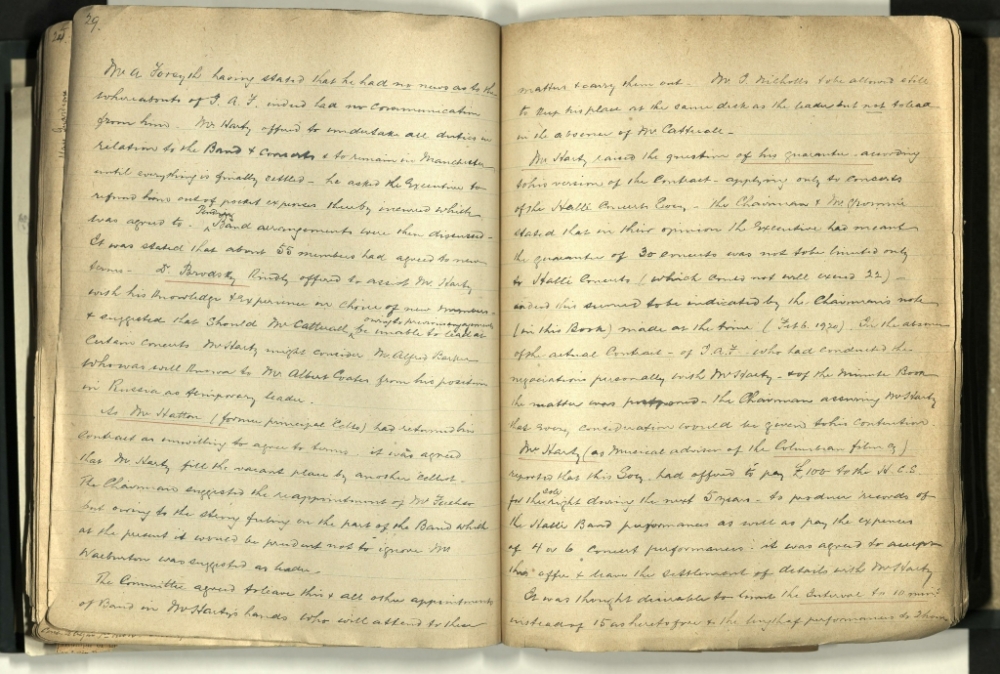 29.
Mr A Forsyth having stated that he had no news as to the
whereabouts of J. A. F. indeed had no communication
from him. Mr Harty offered to undertake all duties in
relation to the Band & Concerts & to remain in Manchester
until everything is finally settled - he asked the Executive to
refund him out of pocket expenses thereby incurred which
was agreed to. Band arrangements were then discussed -
It was stated that about 55 members had agreed to new
terms - Dr Brodsky kindly offered to assist Mr Harty
with his knowledge & experience in choice of new members
& suggested that should Mr Catterall be unable to lead at
certain concerts Mr Harty might consider Mr Alfred Barker
who was well known to Mr Albert Coates from his position
in Russia as temporary leader.
As Mr Hatton (former principal Cello) had returned his
contract as unwilling to agree to terms it was agreed
that Mr Harty fill the vacant place by another 'cellist.
The Chairman suggested the reappointment of Mr
but owing to the strong feeling on the part of the Band which
at the present it would be prudent not to ignore Mr
Warburton was suggested as leader.
The Committee agreed to leave this & all other appointments
of Band in Mr Harty's hands who will attend to these
matters & carry them out - Mr J. Nicholls to be allowed still
to keep his place at the same desk as the leader but not to lead
in the absence of Mr Catterall -
Mr Harty raised the question of his guarantee according
to his version of the Contract - applying only to concerts
of the Hallé Concerts Socy - the Chairman & Mr
stated that in their opinion the Executive had meant
the guarantee of 30 concerts was not to be limited only
to Hallé Concerts (which could not well exceed 22) -
indeed this seemed to be indicated by the Chairman's note
(in this Book) made at the time (Feb 6. 1920) In the absence
of the actual Contract - of J. A. F. who had conducted the
negociations personally with Mr Harty - & of the Minute Book
the matter was postponed - the Chairman assuring Mr Harty
that every consideration would be given to his contention
Mr Harty (as Musical adviser of the Columbian )
reported that this Socy. had offered to pay £100 to the H. C. S.
for the sole right during the next 5 years - to produce records of
the Hallé Band performances as well as pay the expenses
of 4 or 6 concert performances - it was agreed to accept
this offer & leave the settlement of details with Mr Harty
It was thought desirable to limit the Interval to 10 mins
instead of 15 as heretofore & the length of performances to 2 hours